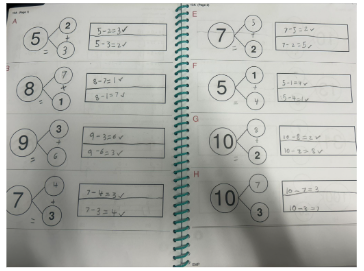 A
5
2
+
3
=
5-2=3✓
5-3=2✓
8
7
+
1
=
8-7=1✓
8-1=7✓
9
3
+
6
=
9-3=6✓
9-6=3✓
7
4
+
3
=
7-4=3✓
7-3=4✓
E
7
5
+
2
=
7-5=2✓
7-2=5✓
F
5
1
+
4
=
5-1=4✓
5-4=1✓
G
10
8
+
2
=
10-8=2✓
10-2=8✓
H
10
7
3
10-7=3